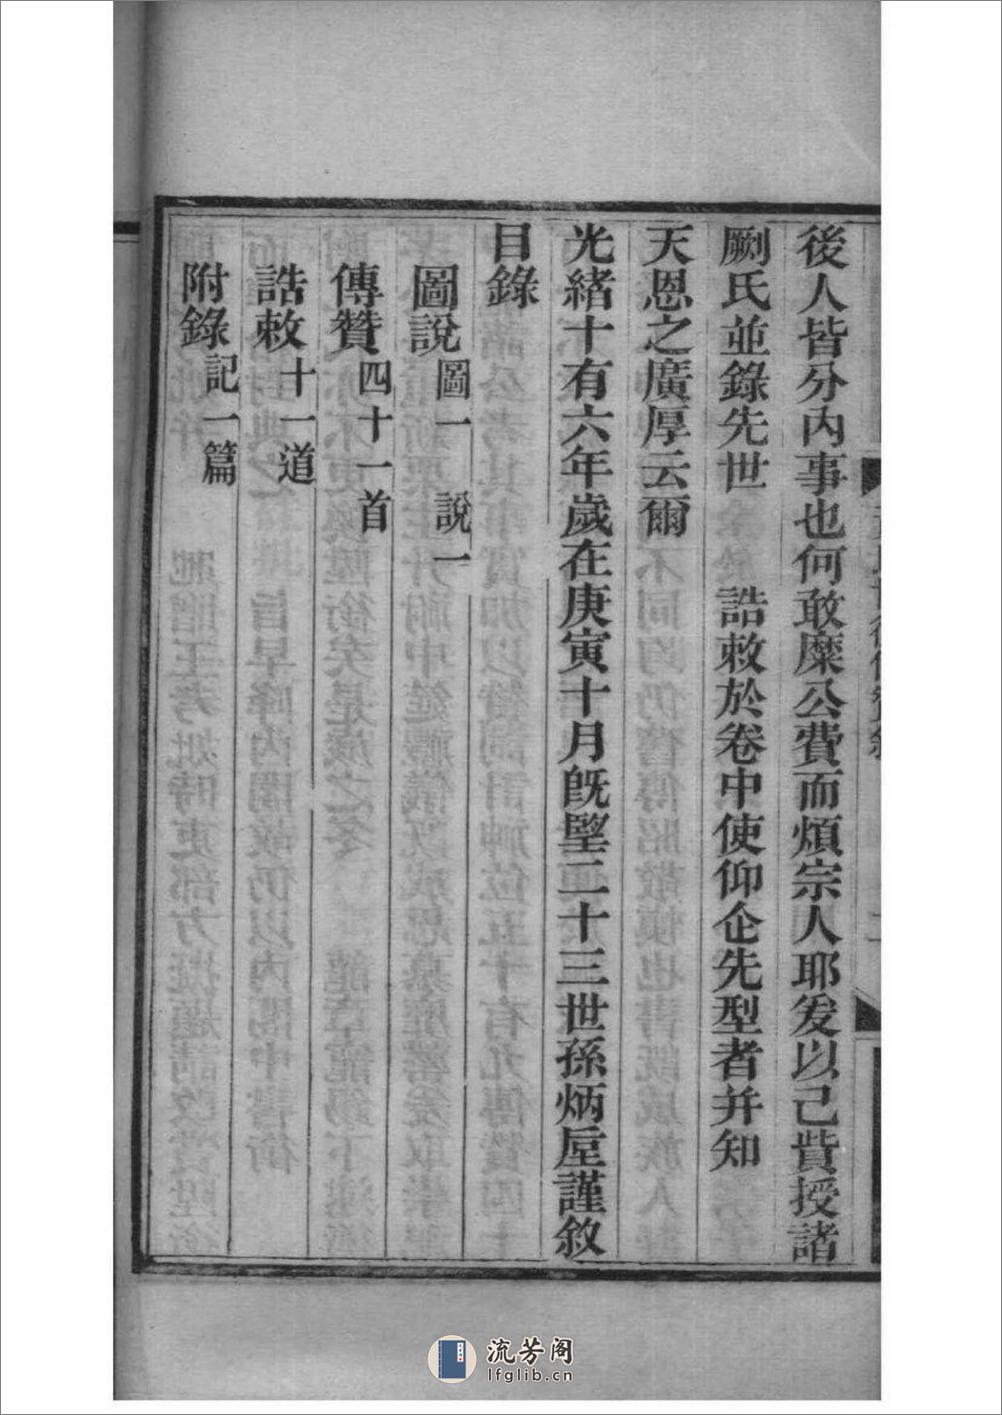 後人皆分內事也何敢糜公費而煩宗人耶爰以己貲授諸
劂氏並錄先世　誥敕於卷中使仰企先型者并知
天恩之廣厚云爾
光緒十有六年歲在庚寅十月既朢二十三世孫炳垕謹敘
目錄
圖說 圖一 說一
傳贊 四十一首
誥敕 十一道
附錄 記一篇
流芳阁
lfglib.cn